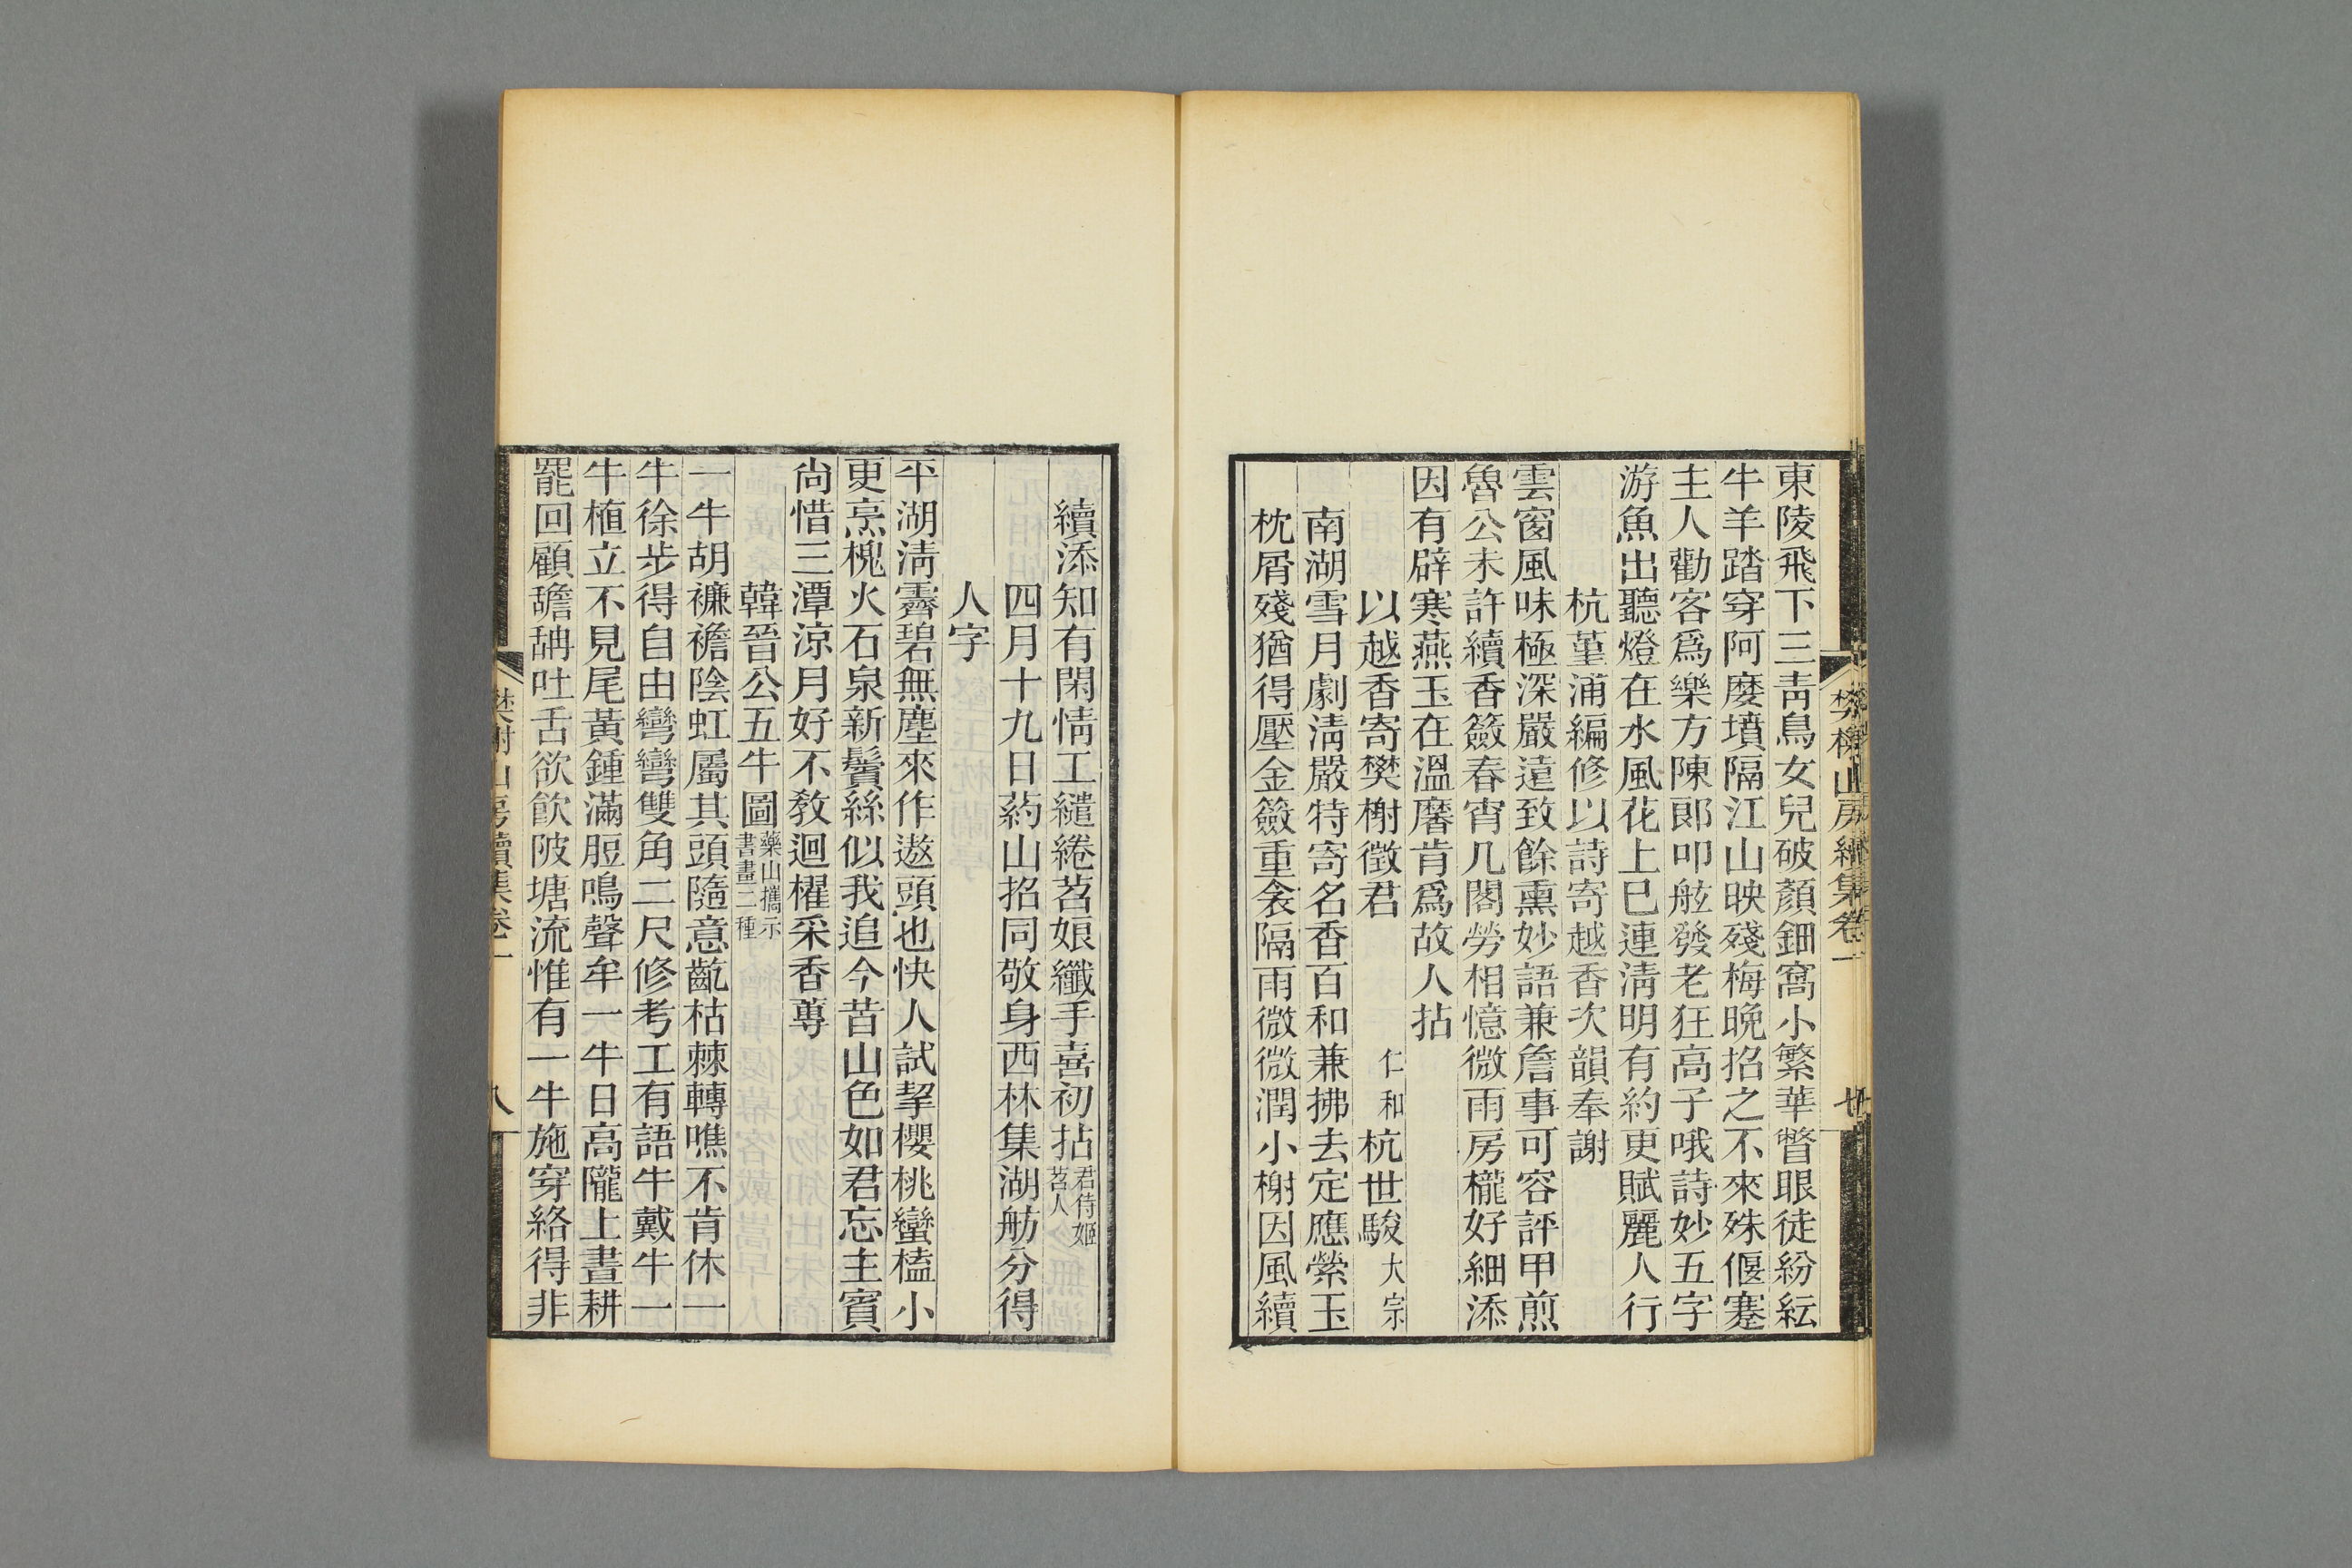 東陵飛下三靑鳥女兒破顏鈿窩小繁華瞥眼徒紛紜
牛羊踏穿阿麼墳隔江山映殘梅晚招之不來殊偃蹇
主人勸客爲樂方陳郞叩舷發老狂高子哦詩妙五字
游魚出聽燈在水風花上巳連淸明有約更賦麗人行
杭堇浦編修以詩寄越香次韻奉謝
雲窗風味極深嚴遠致餘熏妙語兼詹事可容評甲煎
魯公未許續香籢春宵几閣勞相憶微雨房櫳好細添
因有辟寒燕玉在溫黁肯爲故人拈
以越香寄樊榭徵君 仁和杭世駿大宗
南湖雪月劇淸嚴特寄名香百和兼拂去定應縈玉
枕屑殘猶得壓金籢重衾隔雨微微潤小榭因風續
續添知有閑情工繾綣苕娘纖手喜初拈君侍姬苕人
四月十九日葯山招同敬身西林集湖舫分得
人字
平湖淸霽碧無塵來作遨頭也快人試挈櫻桃蠻榼小
更烹槐火石泉新鬢絲似我追今昔山色如君忘主賓
尙惜三潭涼月好不敎迴櫂采香蓴
韓晉公五牛圖藥山攜示書畫二種
一牛胡㡘襜陰虹屬其頭隨意齕枯棘轉噍不肯休一
牛徐步得自由彎彎雙角二尺修考工有語牛戴牛一
牛植立不見尾黃鍾滿脰鳴聲牟一牛日高隴上晝耕
罷回顧䑙䑚吐舌欲飮陂塘流惟有一牛施穿絡得非
樊榭山房續集卷一
八